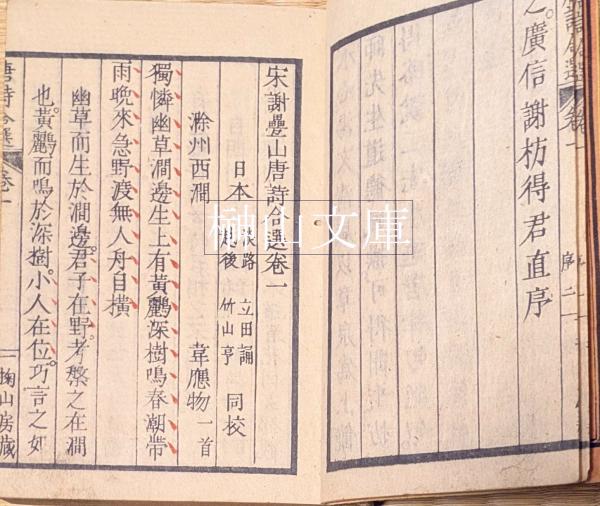 之廣信謝枋得君直序
宋謝疊山唐詩合選卷一
日本 淡路 立田誦 越後 竹山亨 同校
滁州西澗
韋應物一首
獨憐幽草澗邊生上有黃鸝深樹鳴春潮帶
雨晚來急野渡無人舟自橫
幽草而生於澗邊。君子在野。考槃之在澗
也。黃鸝而鳴於深樹。小人在位。巧言之如
唐詩合選 卷一
一掬山房藏
榊山文庫